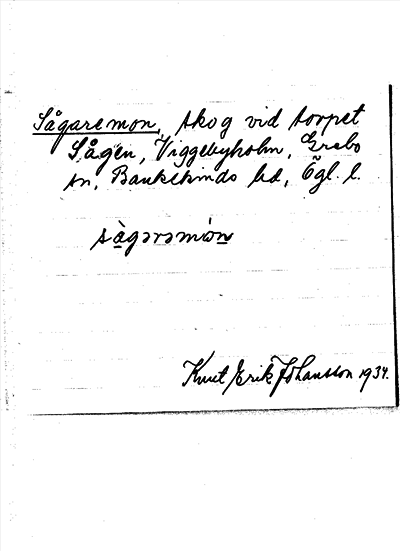 Sågaremon, skog vid torpet
Sågen, Viggebyholm, Grebo
sn, Bankekinds hd, Ögl. l.
sàgarəmón
Knut Erik Johansson 1934.